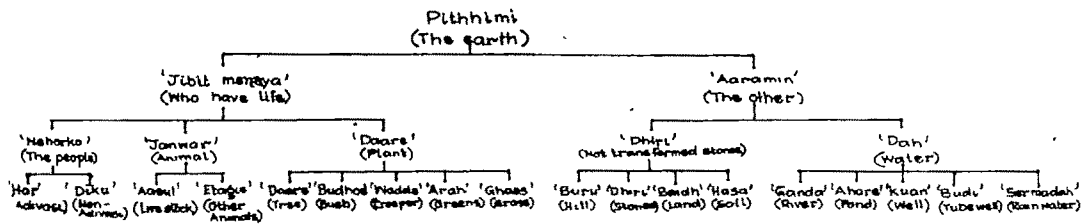 Pithhimi
(The earth)
'Jibit menaya'
(Who have life)
'Aaramin'
(The other)
'Neharko'
(The people)
'Janwar'
(Animal)
'Daare'
(Plant)
'Dhiri'
(Not transformed stones)
'Dah'
(Water)
'Har'
Adivasi)
'Diku'
(Non-
Adivasi)
'Aasul'
(Livestock)
'Etague'
(Other
Animals)
'Daare'
(Tree)
'Budhod'
(Bush)
'Nadda'
(Creeper)
'Arah'
(Greens)
'Ghaas'
(Grass)
'Buru'
(Hill)
'Dhiri'
(Stones)
'Baidh'
(Land)
'Hasa'
(Soil)
'Ganda'
(River)
'Ahare'
(Pond)
'Kuan'
(Well)
'Budi'
(Tubewell)
'Sermadah'
(Rain water)